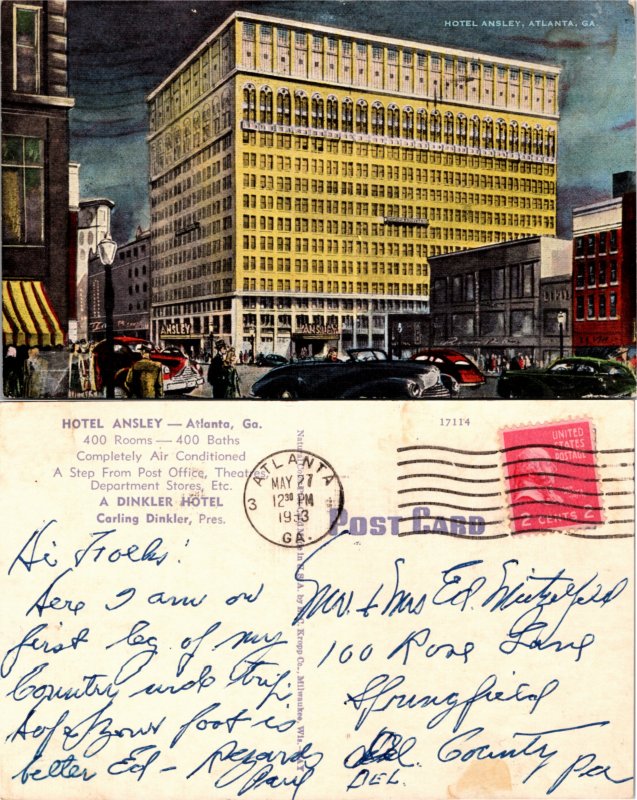 HOTEL ANSLEY, ATLANTA, GA.
ANSLEY
ANSLEY
HOTEL ANSLEY — Atlanta, Ga.
400 Rooms — 400 Baths
Completely Air Conditioned
A Step From Post Office, Theatres
Department Stores, Etc.
A DINKLER HOTEL
Carling Dinkler, Pres.
17114
ATLANTA
MAY 27
12 30 PM
1953
GA.
3
UNITED
STATES
POSTAGE
2 CENTS 2
POST CARD
Kropp Co., Milwaukee, Wis.
Hi Folks:
Here I am on
first leg of my
Country wide trip
Hope your foot is
better Ed - Regards
Paul
Mr. & Mrs Ed.
100 Rose Lane
Springfield
Del. County Pa
DEL.